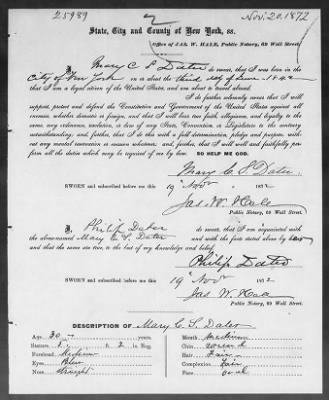 25989
2
Nov. 20. 1872
State, City and County of New York, ss.
Office of JAS. W. HALE, Public Notary, 69 Wall Street.
I, Mary C. S. Dater do swear, that I was born in the
City of New York on or about the third day of
that I am a legal citizen of the United States, and am about to travel abroad.
And I do further solemnly swear that I will
support, protect and defend the Constitution and Government of the United States against all
enemies, whether domestic or foreign, and that I will bear true faith, allegiance, and loyalty to the
same, any ordinance, resolution, or law of any State, Convention, or Legislature to the contrary
notwithstanding; and further, that I do this with a full determination, pledge and purpose, with-
out any mental reservation or evasion whatever; and, further, that I will well and faithfully per-
form all the duties which may be required of me by law. SO HELP ME GOD.
Mary C. S. Dater
SWORN and subscribed before me this 19 Nov 1872
Jas. W. Hale
Public Notary, 69 Wall Street.
I, Philip Dater do swear, that I am acquainted with
the above-named Mary C. S. Dater and with the facts stated above by her
and that the same are true, to the best of my knowledge and belief.
Philip Dater
SWORN and subscribed before me this 19 Nov 1872
Jas W. Hale
Public Notary, 69 Wall Street.
DESCRIPTION OF Mary C. S. Dater
Age, 30 years.
Mouth, medium
Stature, 5 ft. 2 in. Eng.
Chin, round
Forehead, Medium
Hair, Fair
Eyes, Blue
Complexion, Fair
Nose, Straight
Face, oval